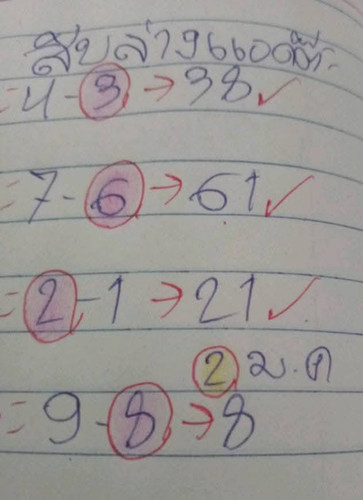 สิบล่าง
= 4-3 → 38 ✓
= 7-6 → 61 ✓
= 2-1 → 21 ✓
2 ม.ค
= 9-8 → 8